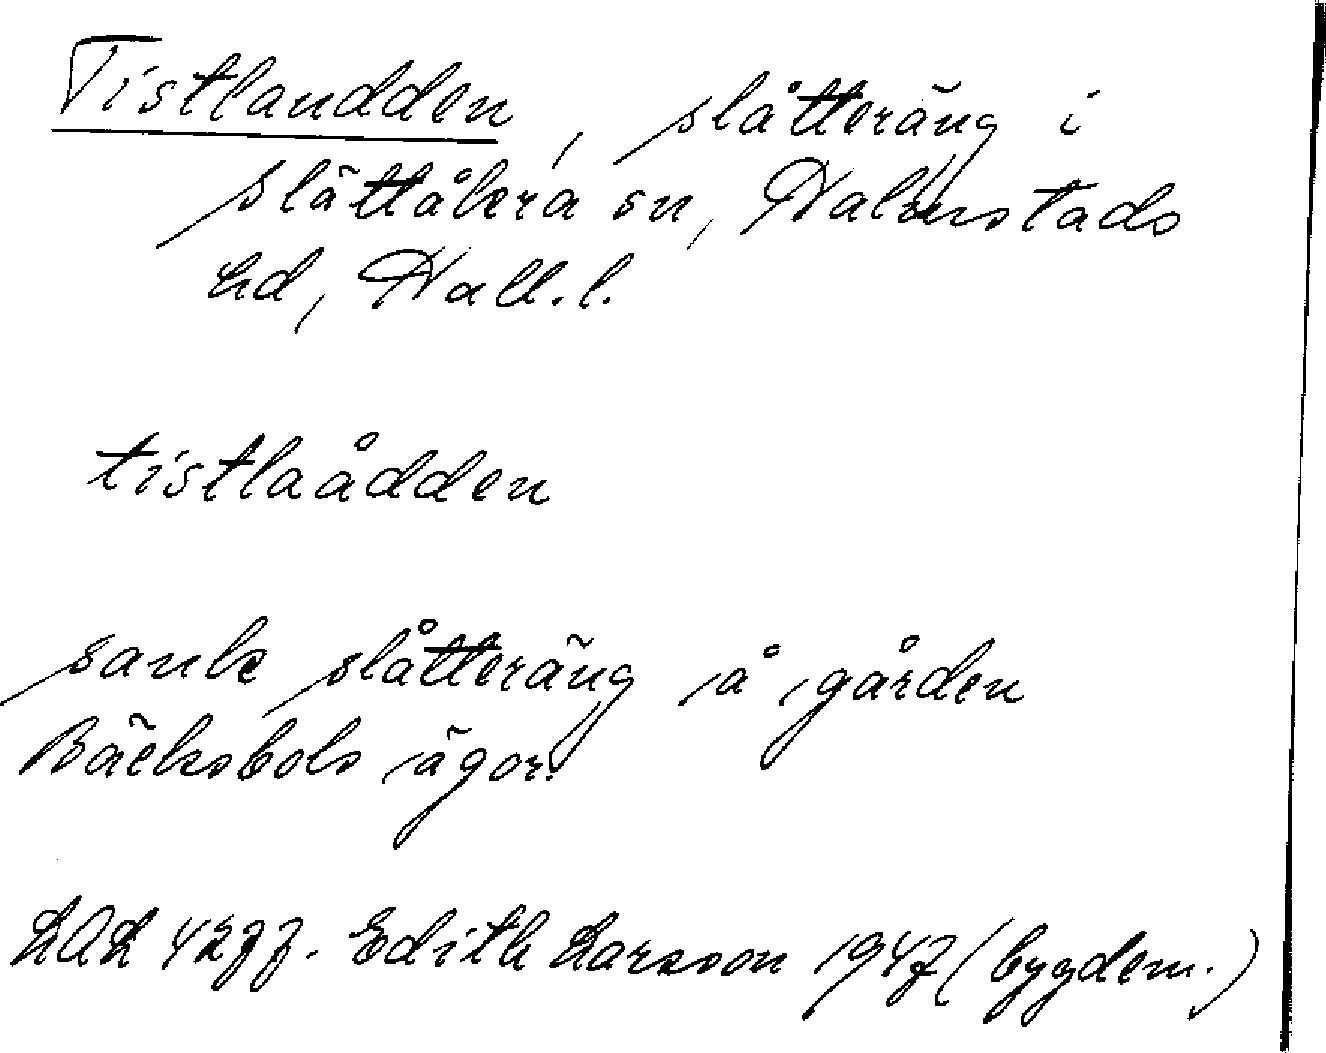 Tistlaudden, slåtteräng i
Slättåkra sn, Halmstads
hd, Hall.l.
tistlaådden
sank slåtteräng å gården
Bäcksbols ägor.
LAL 4277. Edith Larsson 1947 (bygdem.)